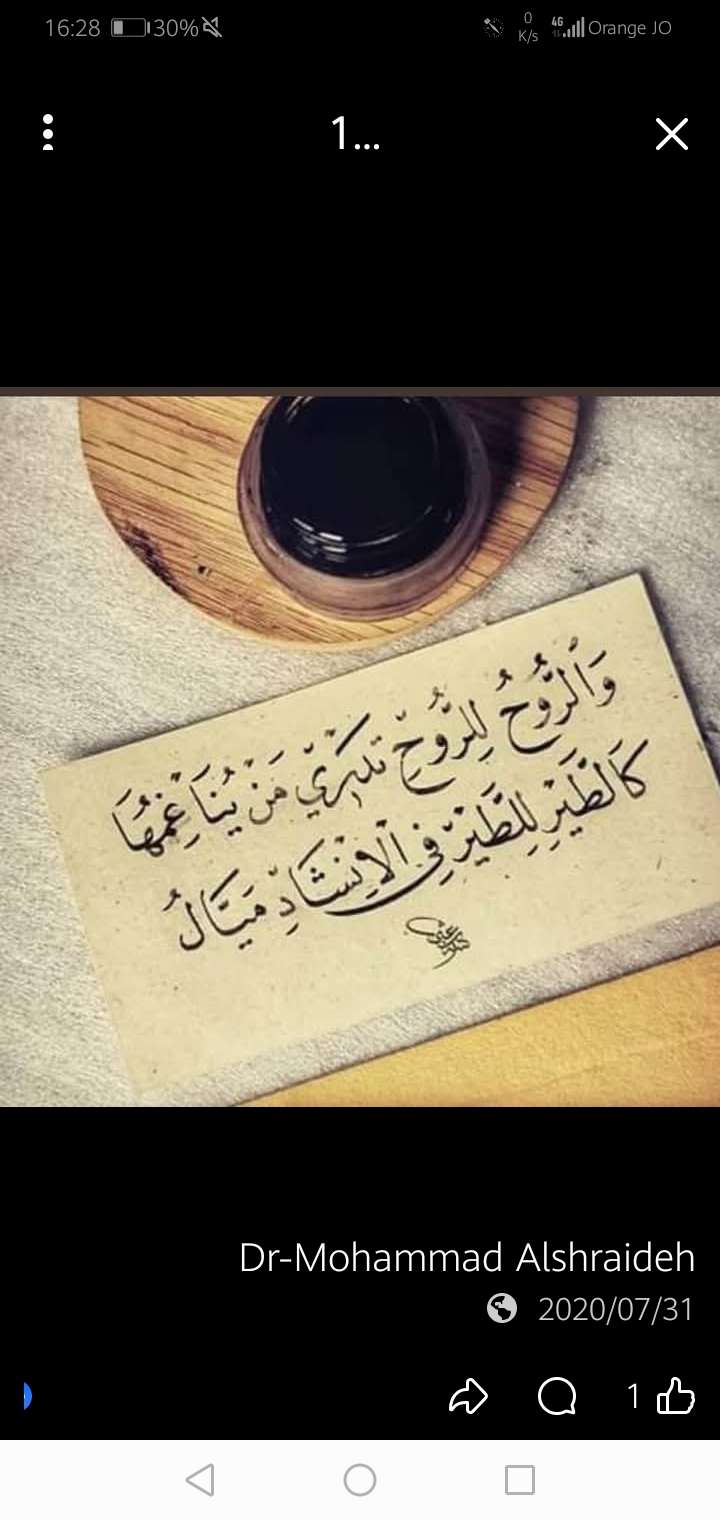 16:28 30% 0 K/s 4G Orange JO
1...
وَالرُّوحُ لِلرُّوحِ تَدْرِي مَنْ يُنَاغِمُهَا
كَالطَّيْرِ لِلطَّيْرِ فِي الْإِنْشَادِ مَيَّالُ
Dr-Mohammad Alshraideh
2020/07/31
1